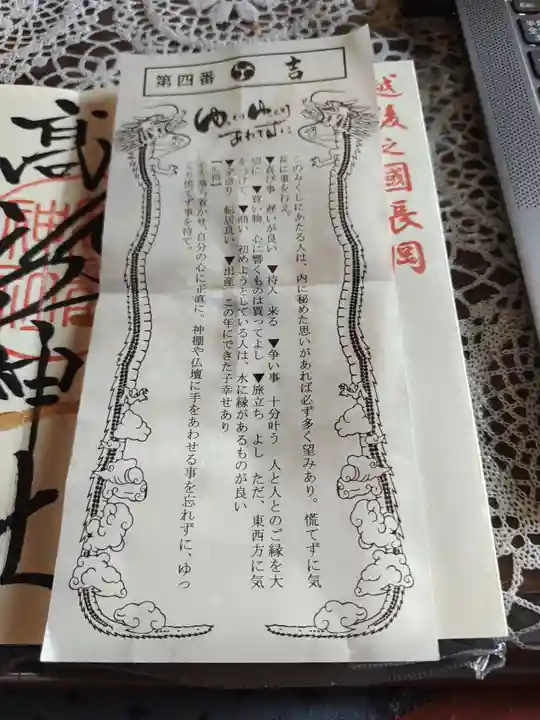 越後之國長岡
第四番 吉
ゆっくりゆっくり
あわてずに
このみくじにあたる人は、内に秘めた思いがあれば必ず多く望みあり。慌てずに気
長に事を行え。
▼喜び事 遅いが良い ▼待人 来る ▼争い事 十分叶う 人と人とのご縁を大
切に ▼買い物 心に響くものは買ってよし ▼旅立ち よし ただ、東西方に気
をつけて ▼商い 初めようとしている人は、水に縁があるものが良い
▼家造り 転居良い ▼出産 この年にできた子幸せあり
心を落ち着かせ、自分の心に正直に。神棚や仏壇に手をあわせる事を忘れずに、ゆっ
くり慌てず事を待て。
高彦根神社